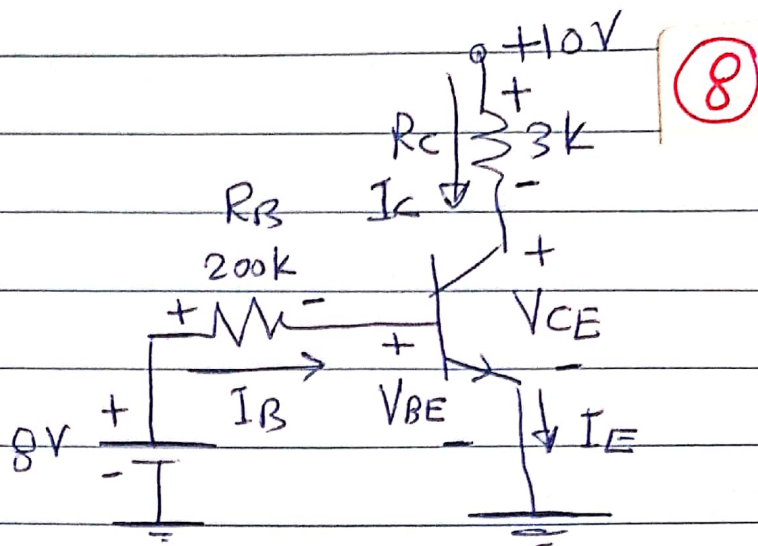 +10V
8
+
Rc 3K
Ic -
RB
200K
+ - +
VCE
+ -
IB VBE IE
+ -
8V
-